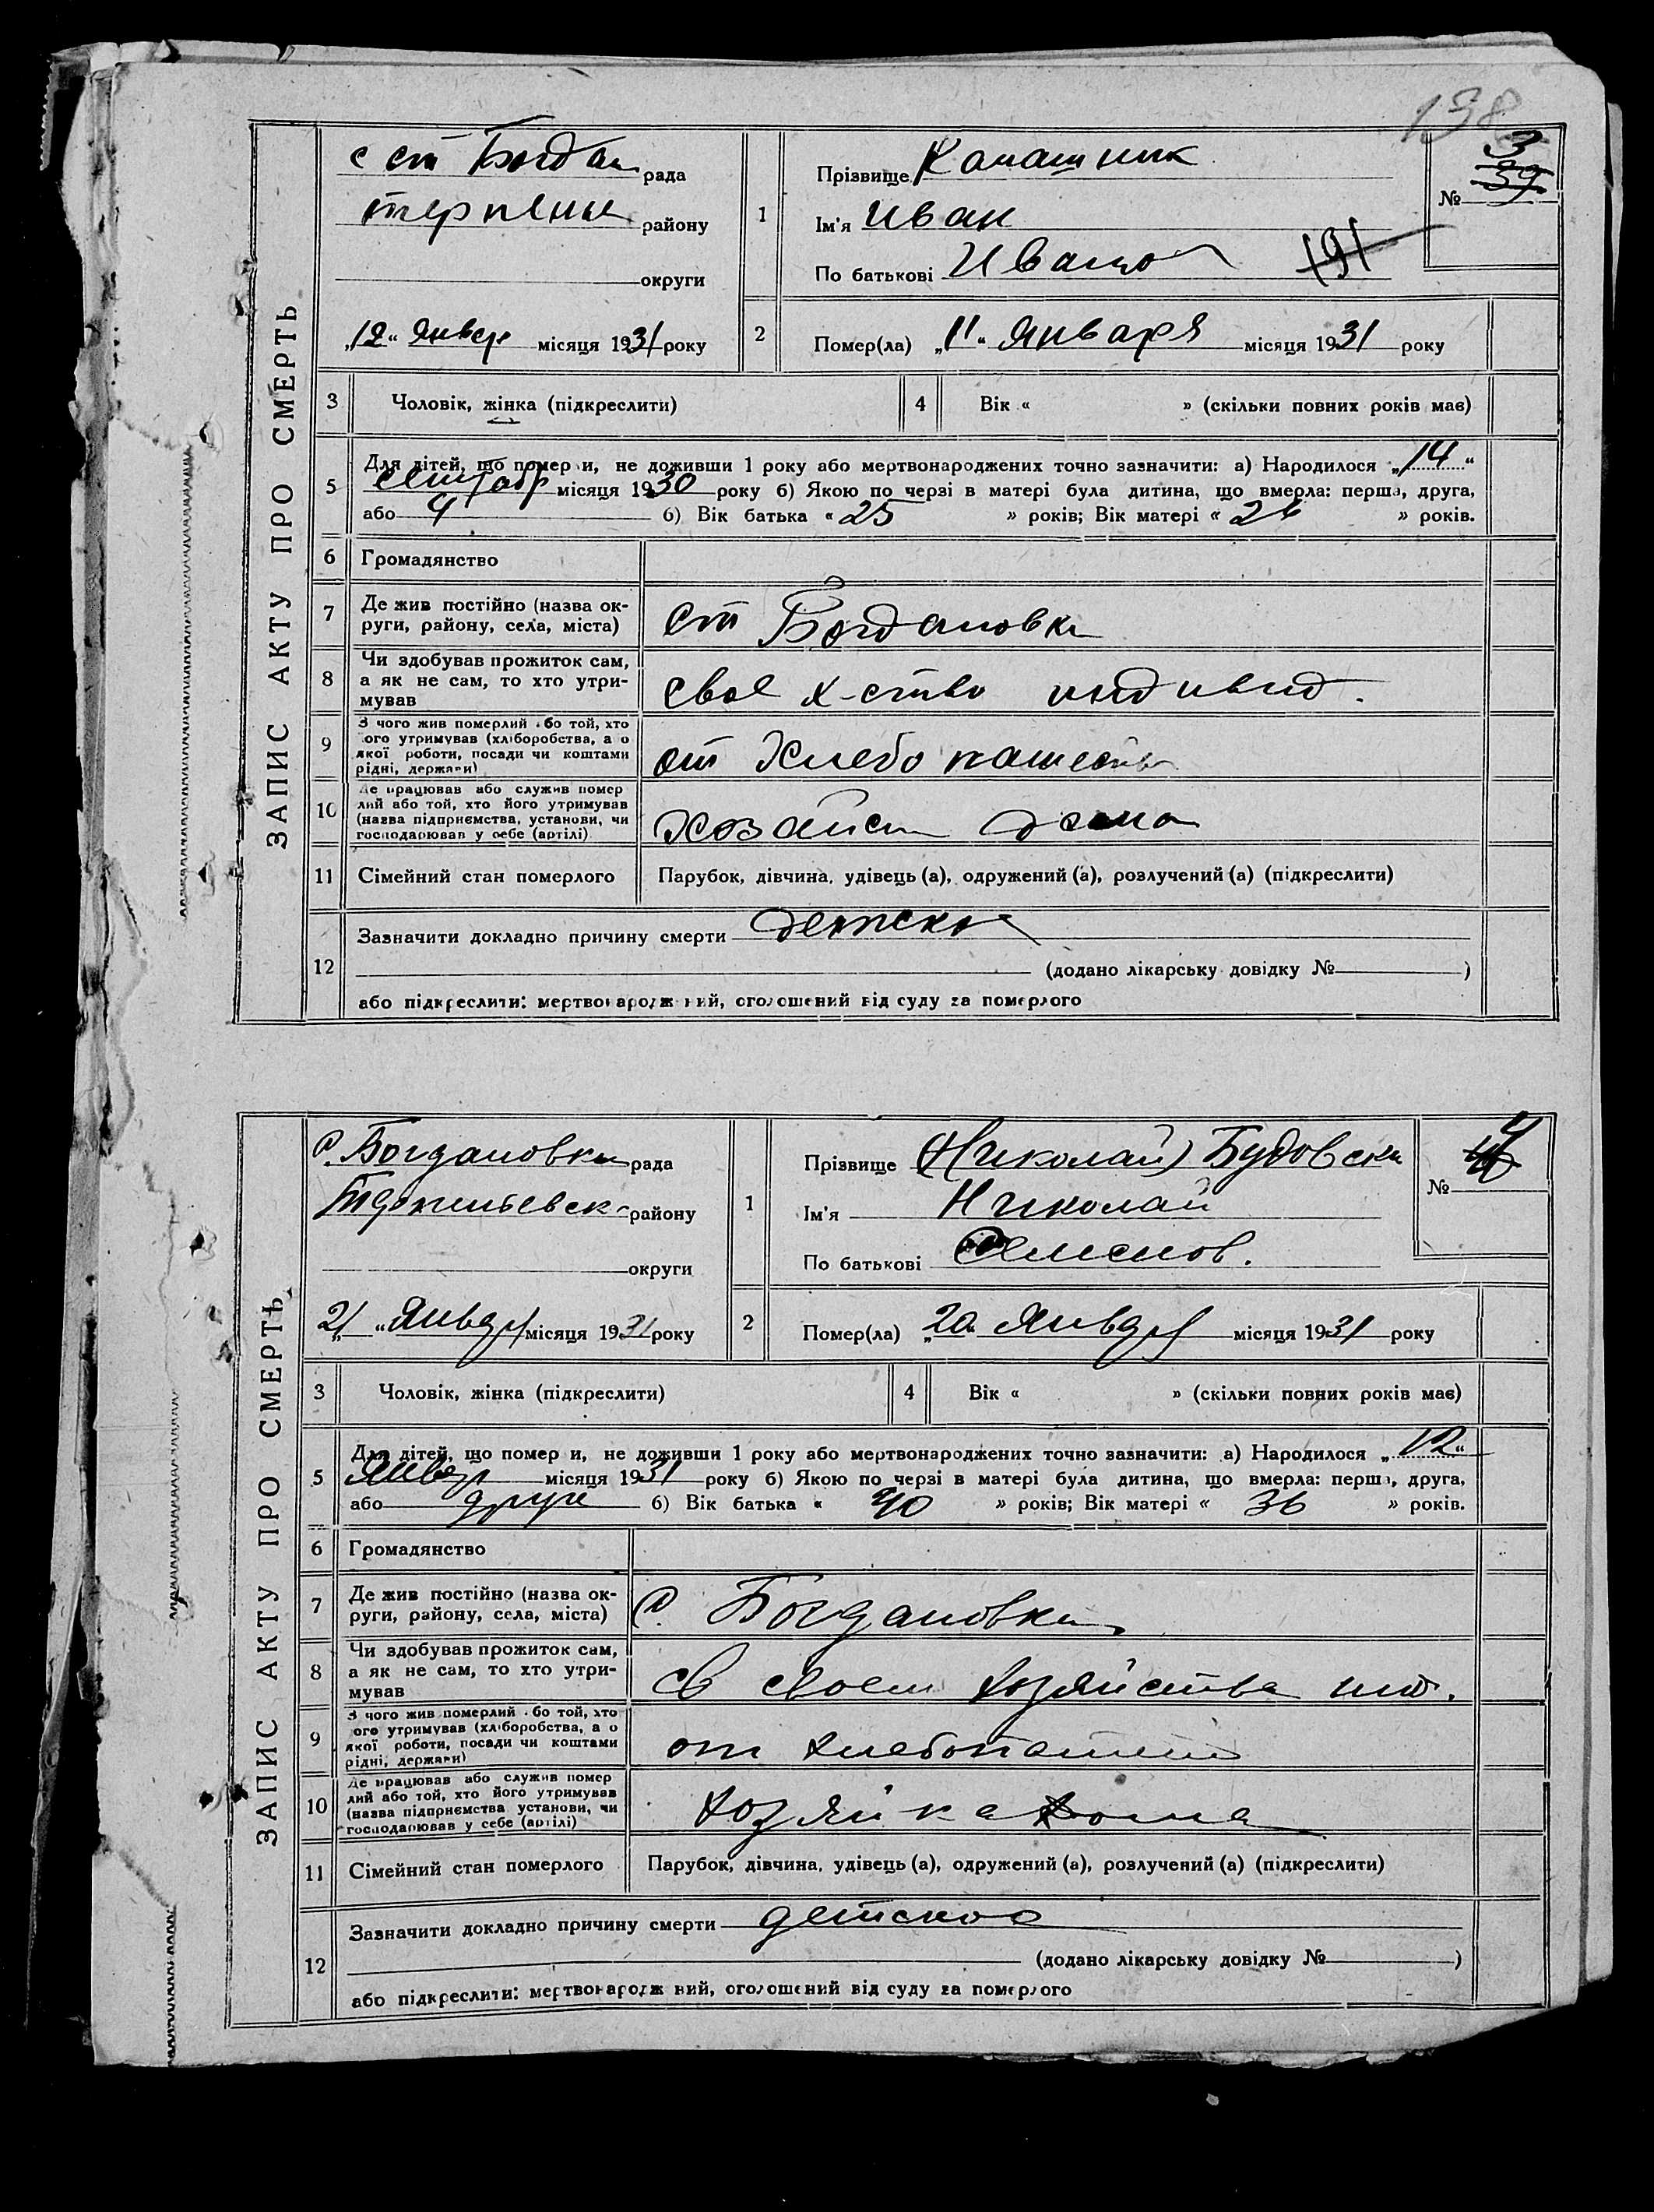 138
ЗАПИС АКТУ ПРО СМЕРТЬ
с ст Богдан рада
терпение району
округи
„12“ Январ місяця 1931 року
1
Прізвище
Ім'я Иван
По батькові Ивано
191
№ 3
39
2
Помер(ла) „11“ Января місяця 1931 року
3 Чоловік, жінка (підкреслити)
4 Вік « » (скільки повних років має)
5 Для дітей, що померли, не доживши 1 року або мертвонароджених точно зазначити: а) Народилося „14“
Сентябр місяця 1930 року б) Якою по черзі в матері була дитина, що вмерла: перша, друга,
або 4 б) Вік батька « 25 » років; Вік матері « 26 » років.
6 Громадянство
7 Де жив постійно (назва ок-
руги, району, села, міста)
ст Богдановка
8 Чи здобував прожиток сам,
а як не сам, то хто утри-
мував
свое х-ство индивид.
9 З чого жив померлий або той, хто
його утримував (хліборобства, а о
якої роботи, посади чи коштами
рідні, держави)
от Хлебопашества
10 Де працював або служив помер
лий або той, хто його утримував
(назва підприємства, установи, чи
господарював у себе (артілі)
Хозяйст дома
11 Сімейний стан померлого
Парубок, дівчина, удівець (а), одружений (а), розлучений (а) (підкреслити)
12 Зазначити докладно причину смерти детская
(додано лікарську довідку № )
або підкреслити: мертвонароджений, оголошений від суду за померлого
ЗАПИС АКТУ ПРО СМЕРТЬ
с. Богдановка рада
району
округи
„21“ Январ місяця 1931 року
1
Прізвище (Николай) Будовски
Ім'я Николай
По батькові Семенов.
№ 4
2
Помер(ла) „20“ Январ місяця 1931 року
3 Чоловік, жінка (підкреслити)
4 Вік « » (скільки повних років має)
5 Для дітей, що померли, не доживши 1 року або мертвонароджених точно зазначити: а) Народилося „12“
Январ місяця 1931 року б) Якою по черзі в матері була дитина, що вмерла: перша, друга,
або друга б) Вік батька « 40 » років; Вік матері « 36 » років.
6 Громадянство
7 Де жив постійно (назва ок-
руги, району, села, міста)
с. Богдановка
8 Чи здобував прожиток сам,
а як не сам, то хто утри-
мував
в своем хозяйстве инд.
9 З чого жив померлий або той, хто
його утримував (хліборобства, а о
якої роботи, посади чи коштами
рідні, держави)
от хлебопашест
10 Де працював або служив помер
лий або той, хто його утримував
(назва підприємства установи, чи
господарював у себе (артілі)
хозяйка дома
11 Сімейний стан померлого
Парубок, дівчина, удівець (а), одружений (а), розлучений (а) (підкреслити)
12 Зазначити докладно причину смерти детская
(додано лікарську довідку № )
або підкреслити: мертвонароджений, оголошений від суду за померлого